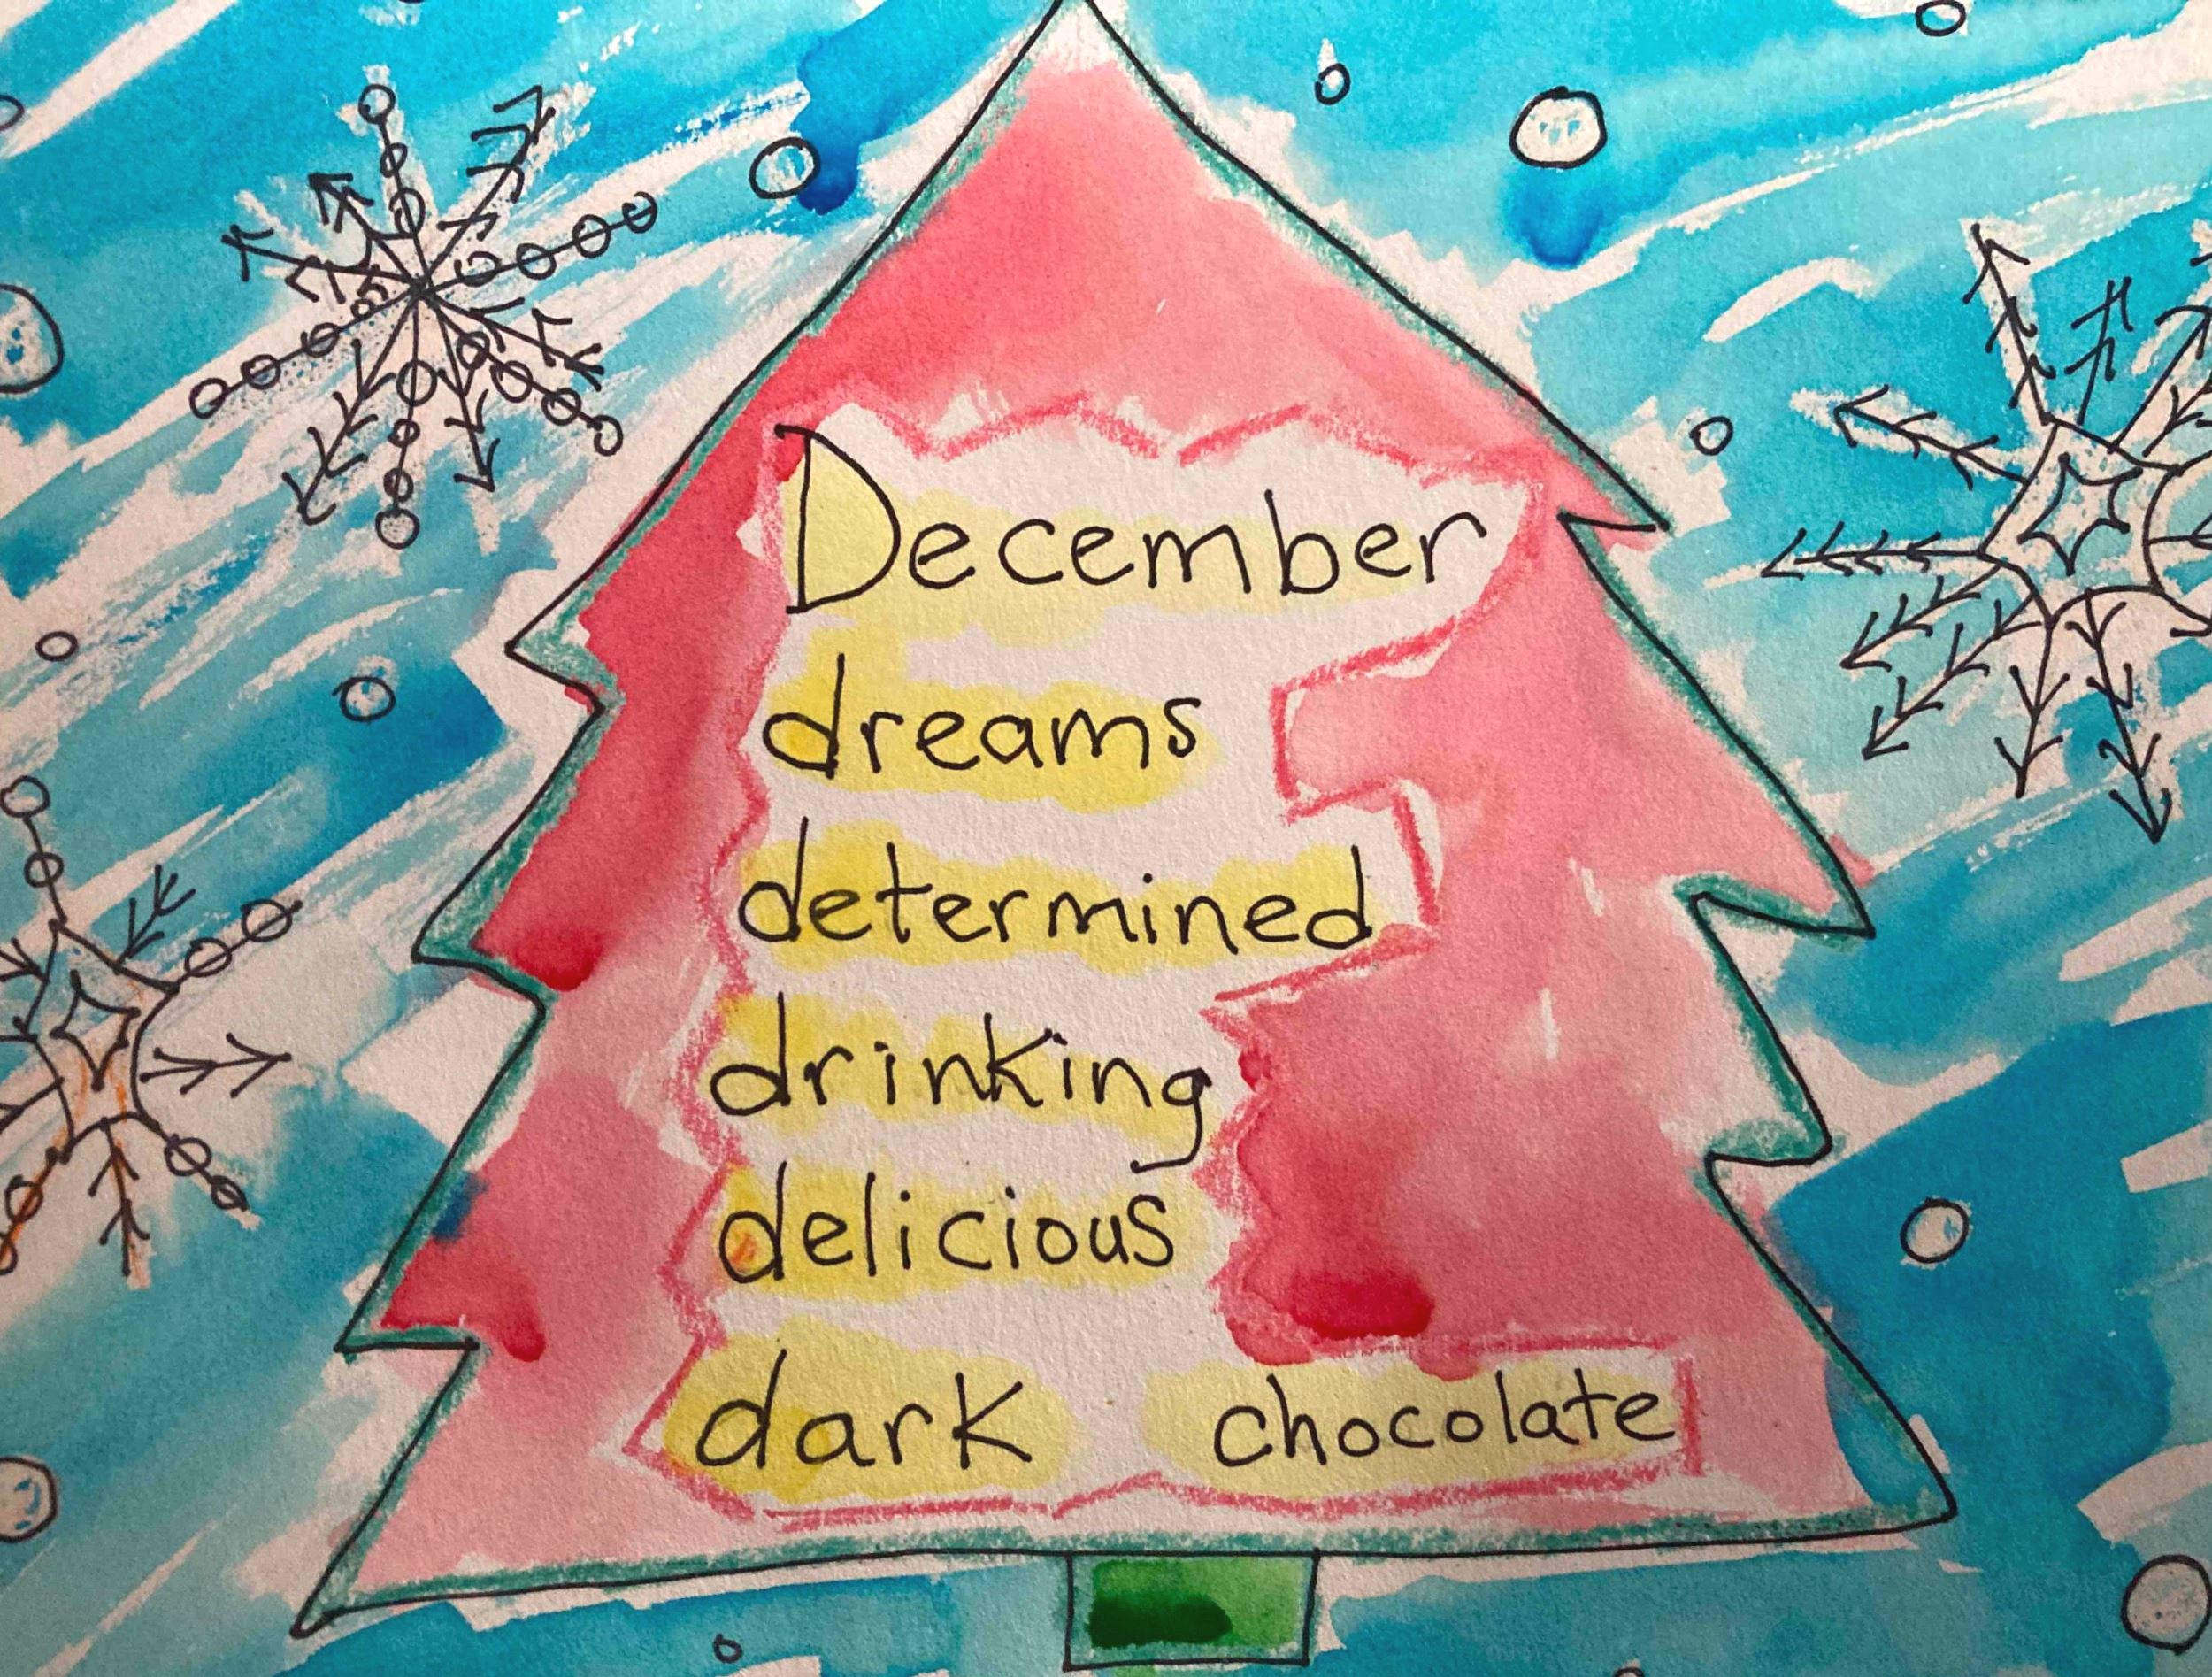 December
dreams
determined
drinking
delicious
dark chocolate